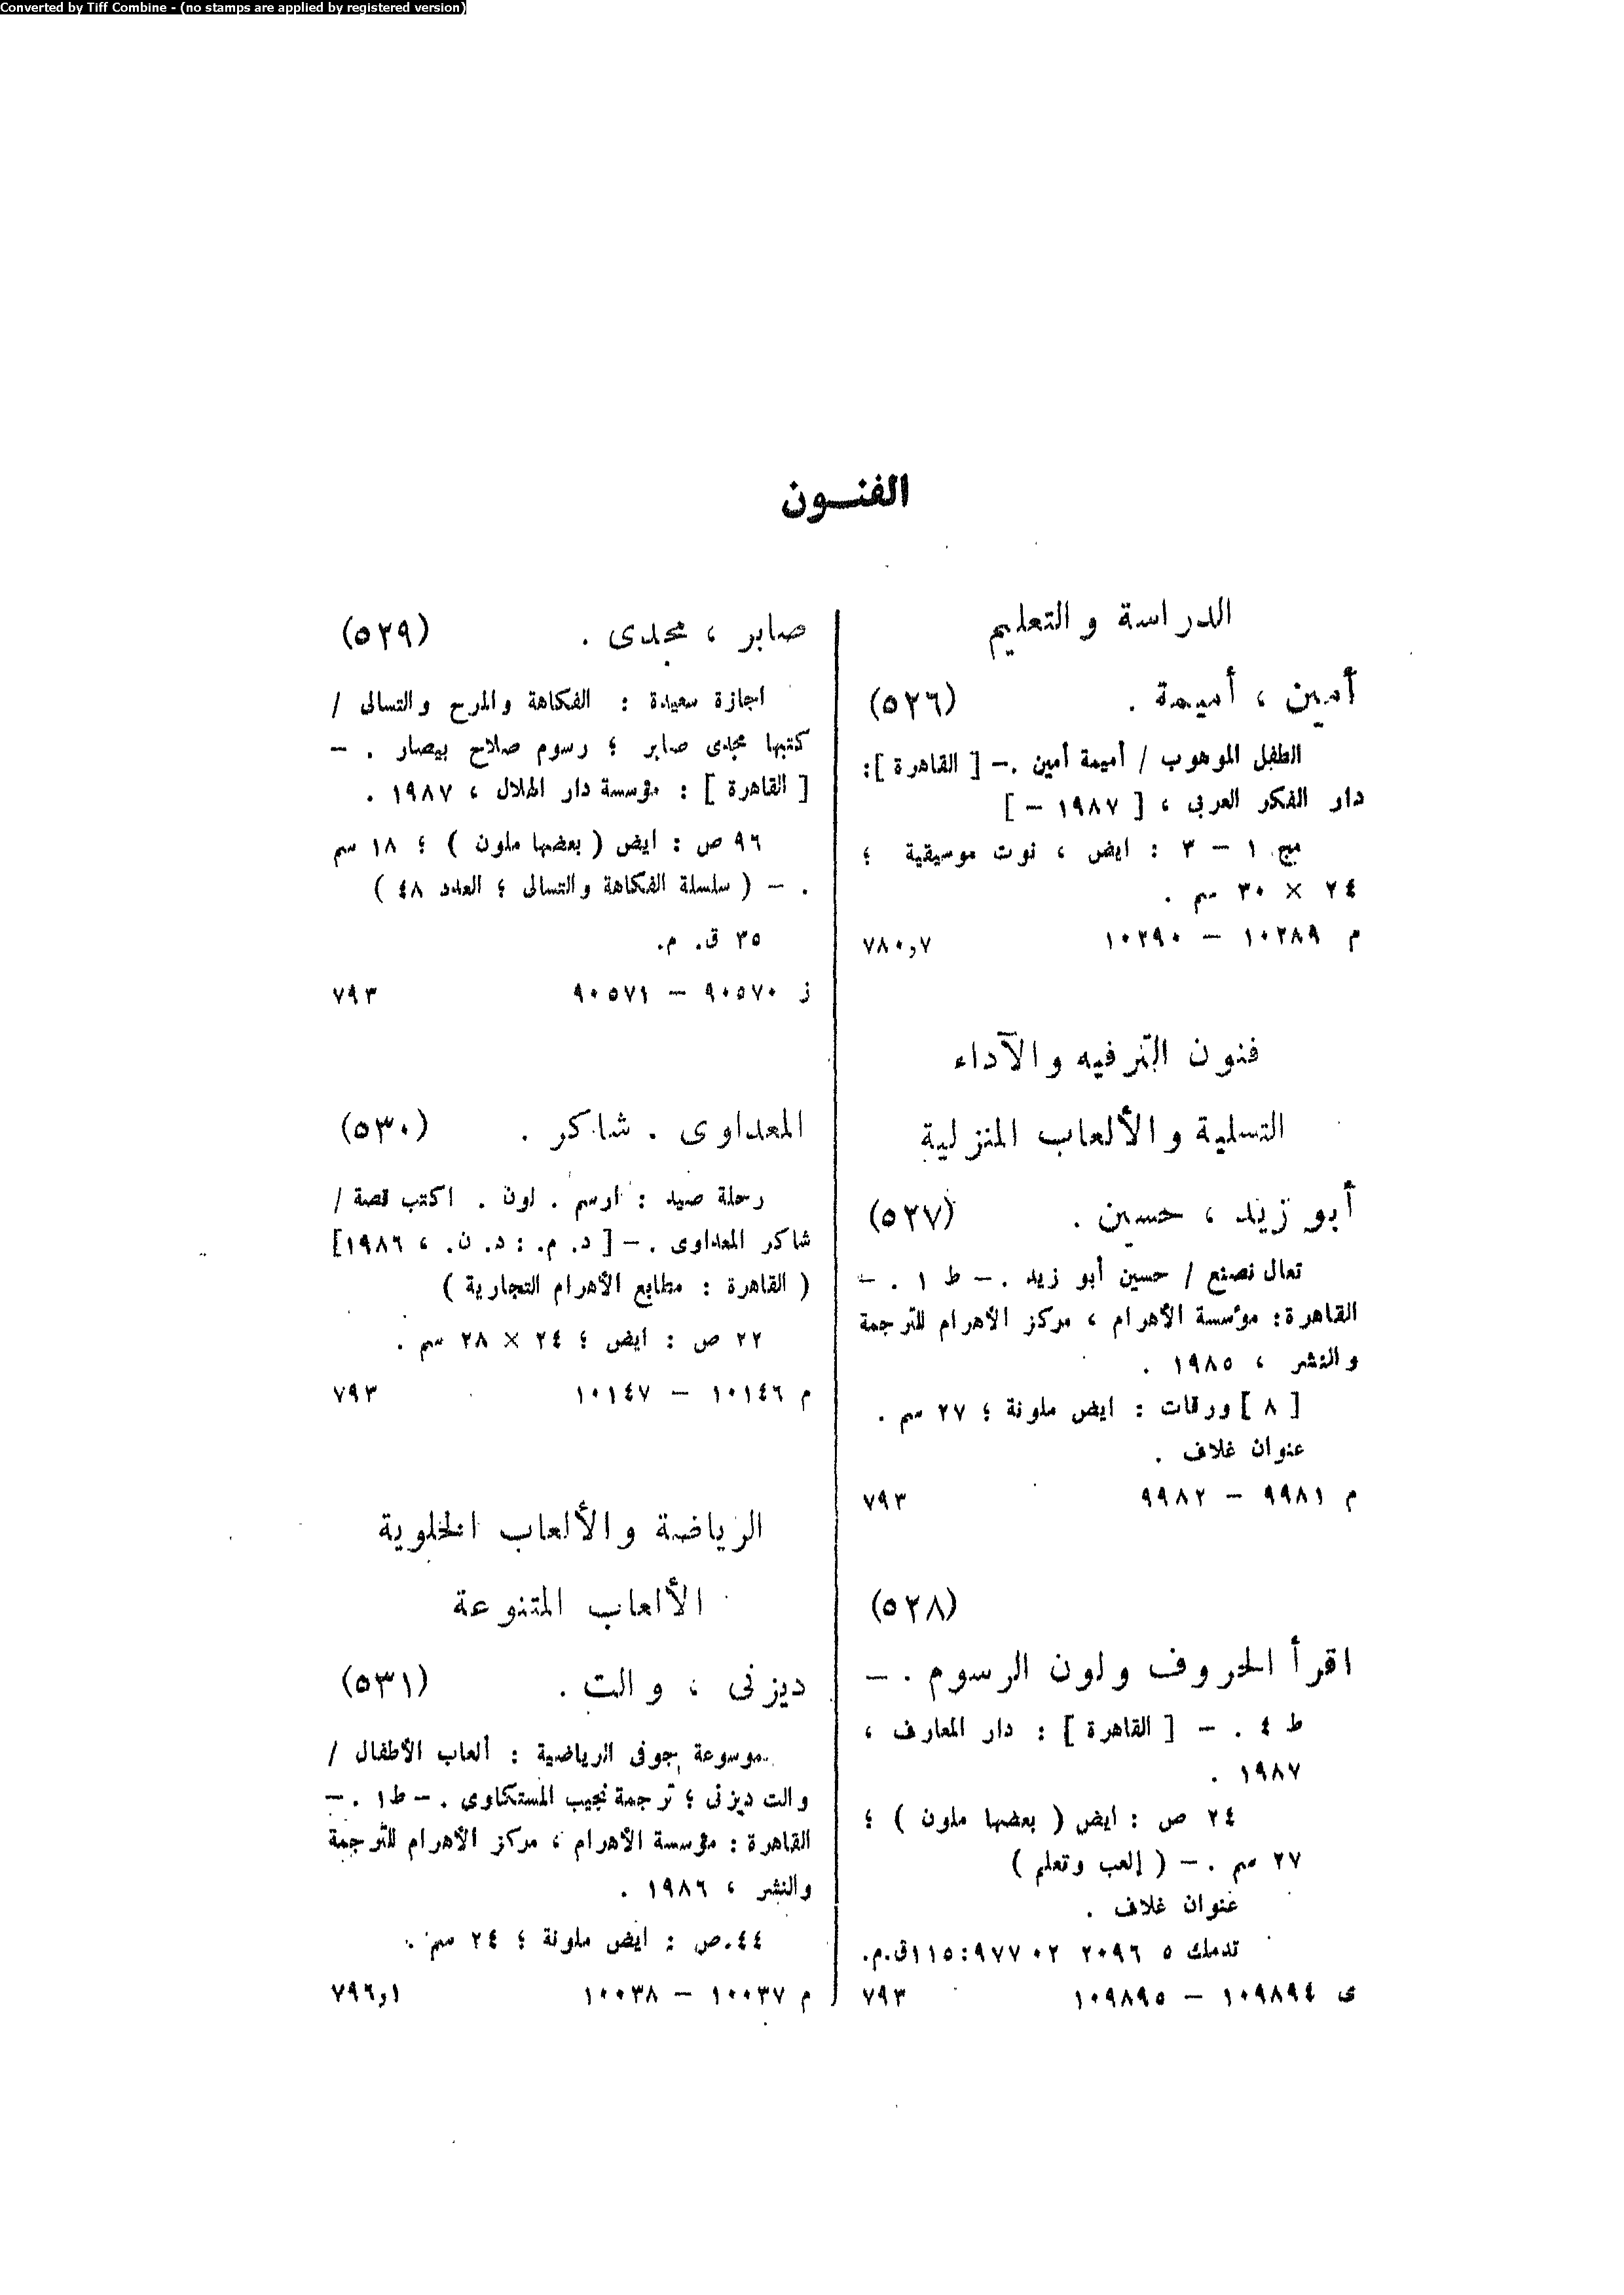 Converted by Tiff Combine - (no stamps are applied by registered version)
الفنــون
الدراسة والتعليم
أمين ، أميمة . (٥٢٦)
الطفل الموهوب / أميمة أمين .– [ القاهرة ]:
دار الفكر العربى ، [ ١٩٨٧ – ]
مج ١ – ٣ : ايض ، نوت موسيقية ؛
٢٤ × ٣٠ سم .
م ١٠٢٨٩ – ١٠٢٩٠ ٧٨٠,٧
فنون الترفيه والآداء
التسلية والألعاب المنزلية
أبو زيد ، حسين . (٥٢٧)
تعال نصنع / حسين أبو زيد .– ط ١ . –
القاهرة: مؤسسة الأهرام ، مركز الأهرام للترجمة
والنشر ، ١٩٨٥ .
[ ٨ ] ورقات : ايض ملونة ؛ ٢٧ سم .
عنوان غلاف .
م ٩٩٨١ – ٩٩٨٢ ٧٩٣
(٥٢٨)
اقرأ الحروف ولون الرسوم . –
ط ٤ . – [ القاهرة ] : دار المعارف ،
١٩٨٧ .
٢٤ ص : ايض ( بعضها ملون ) ؛
٢٧ سم .– ( إلعب وتعلم )
عنوان غلاف .
تدمك ٥ ٢٠٩٦ ٠٢ ٩٧٧ :١١٥ق.م.
ى ١٠٩٨٩٤ – ١٠٩٨٩٥ ٧٩٣
صابر ، مجدى . (٥٢٩)
اجازة سعيدة : الفكاهة والمرح والتسالى /
كتبها مجدى صابر ؛ رسوم صلاح بيصار . –
[ القاهرة ] : مؤسسة دار الهلال ، ١٩٨٧ .
٩٦ ص : ايض ( بعضها ملون ) ؛ ١٨ سم
. – ( سلسلة الفكاهة والتسالى ؛ العدد ٤٨ )
٣٥ ق. م.
ز ٩٠٥٧٠ – ٩٠٥٧١ ٧٩٣
المعداوى . شاكر . (٥٣٠)
رحلة صيد : ارسم . لون . اكتب قصة /
شاكر المعداوى .– [ د. م. : د. ن. ، ١٩٨٦]
( القاهرة : مطابع الأهرام التجارية )
٢٢ ص : ايض ؛ ٢٤ × ٢٨ سم .
م ١٠١٤٦ – ١٠١٤٧ ٧٩٣
الرياضة والألعاب الخلوية
الألعاب المتنوعة
ديزنى ، والت . (٥٣١)
موسوعة جوفى الرياضية : ألعاب الأطفال /
والت ديزنى ؛ ترجمة نجيب المستكاوى .– ط١ .–
القاهرة : مؤسسة الأهرام ، مركز الأهرام للترجمة
والنشر ، ١٩٨٦ .
٤٤.ص : ايض ملونة ؛ ٢٤ سم .
م ١٠٠٣٧ – ١٠٠٣٨ ٧٩٦,١